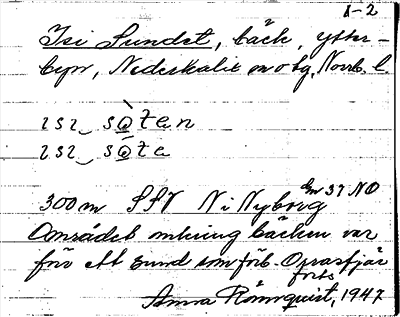 1-2
Isi Sundet, bäck, Ytter-
byn, Nederkalix sn o tg, Norrb. l.
ɪsɪ‿sòtan
ɪsɪ‿sòta
Em 37 NO
300 m SSV N i Nyborg
Området omkring bäcken var
förr ett sund som förb. Orrasfjär
forts
Anna Rönnquist, 1947